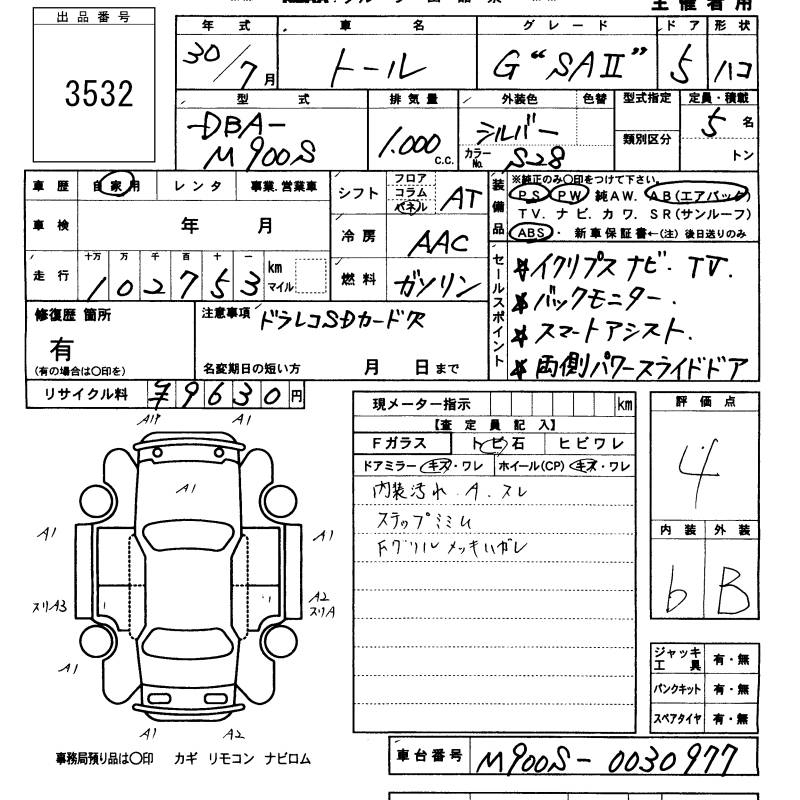 主催者用
出品番号
3532
年式 車名 グレード ドア 形状
30/7月 トール G“SAII” 5 ハコ
型式 排気量 外装色 色替 型式指定 定員・積載
DBA- シルバー 5名
M900S 1.000 c.c. カラーNo. S28 類別区分 トン
車歴 自家用 レンタ 事業、営業車
シフト フロア コラム パネル AT
装備品 ※純正のみ○印をつけて下さい。
PS PW 純AW. AB(エアバック)
TV. ナビ. カワ. SR(サンルーフ)
ABS・ 新車保証書←(注)後日送りのみ
車検 年 月
冷房 AAC
走行 十万 万 千 百 十 一
102753 km マイル
燃料 ガソリン
セールスポイント
☆イクリプス ナビ・TV.
☆バックモニター.
☆スマートアシスト.
☆両側パワースライドドア
修復歴 箇所
有
(有の場合は○印を)
注意事項 ドラレコSDカード欠
名変期日の短い方 月 日まで
リサイクル料 ¥9630円
現メーター指示 km
【査定員記入】
Fガラス トビ石 ヒビワレ
ドアミラー キズ・ワレ ホイール(CP) キズ・ワレ
内装汚れ.A.スレ
ステップミミム
Fグリル メッキハガレ
評価点
4
内装 外装
b B
ジャッキ工具 有・無
パンクキット 有・無
スペアタイヤ 有・無
A1P A1
A1
A1 A1
スリA3 A2
スリA
A1
A1 A2
事務局預り品は○印 カギ リモコン ナビロム
車台番号 M900S-0030977